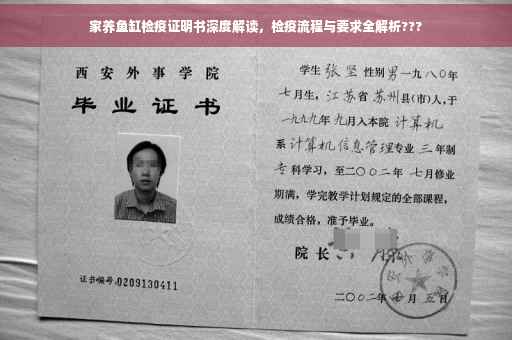 家养鱼缸检疫证明书深度解读，检疫流程与要求全解析???
西安外事学院
毕业证书
证书编号:0209130411
学生 张坚 性别 男 一九八〇年
七月生，江苏省 苏州 县(市)人，于
一九九九年 九月入本院 计算机
系 计算机信息管理 专业 三 年制
专 科学习，至二〇〇二年 七月修业
期满，学完教学计划规定的全部课程，
成绩合格，准予毕业。
院长
二〇〇二年 月五日